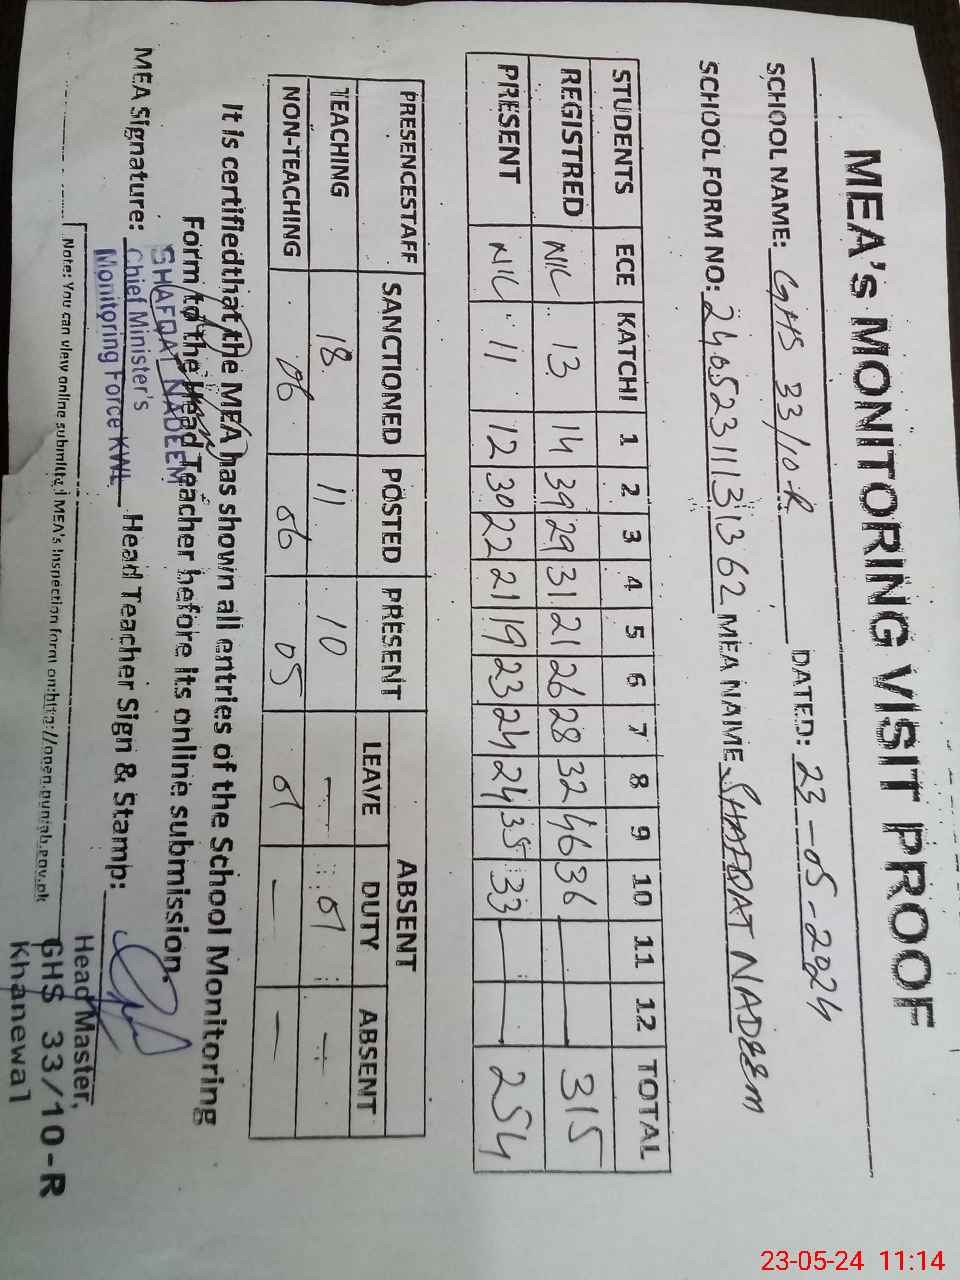 MEA's MONITORING VISIT PROOF
SCHOOL NAME: GHS 33/10-R DATED: 23-05-2024
SCHOOL FORM NO: 24052311131362 MEA NAME SHAFQAT NADEEM
STUDENTS ECE KATCHI 1 2 3 4 5 6 7 8 9 10 11 12 TOTAL
REGISTRED NIL 13 14 39 29 31 21 26 28 32 46 36 — — 315
PRESENT NIL 11 12 30 22 21 19 23 24 24 35 33 — — 254
PRESENCESTAFF SANCTIONED POSTED PRESENT ABSENT
LEAVE DUTY ABSENT
TEACHING 18 11 10 — 01 —
NON-TEACHING 06 06 05 01 — —
It is certifiedthat the MEA has shown all entries of the School Monitoring
Form to the Head Teacher before its online submission
MEA Signature: Head Teacher Sign & Stamp:
SHAFQAT NADEEM
Chief Minister's
Monitoring Force KWL
Head Master,
GHS 33/10-R
Khanewal
Note: You can view online submitted MEA's Inspection form on:http://open.punjab.gov.pk
23-05-24 11:14